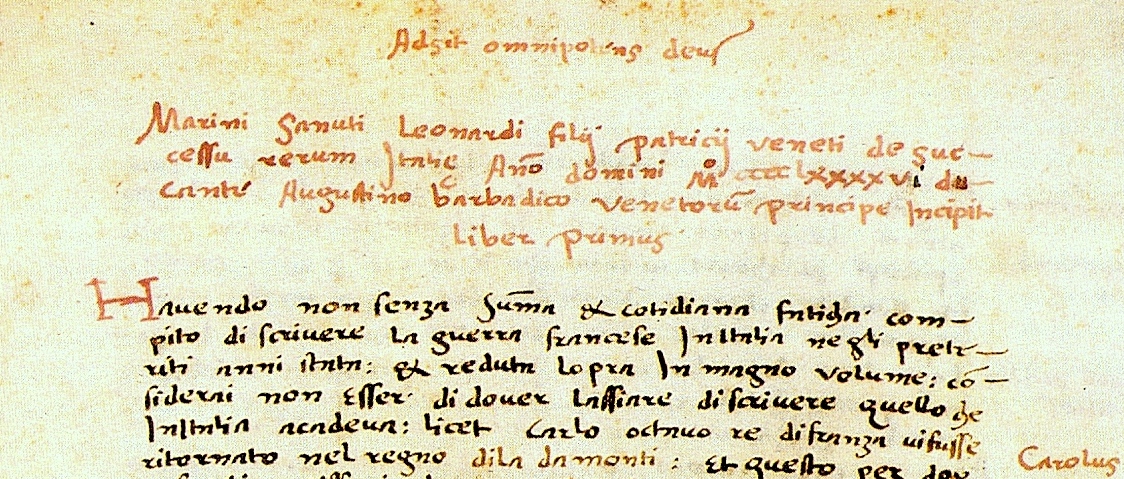 Adsit omnipotens deus
Marini Sanuti Leonardi filij patricij veneti de suc-
cessu rerum Italię Año domini Mº cccc lxxxxvi du-
cante Augustino barbadico venetorū principe Incipit
liber primus
Havendo non senza Sūma & cotidiana faticha com-
pito di scrivere la guerra francese In Italia negli prete-
riti anni stata: & reduta lopra In magno volume: cō-
siderai non Esser di dover lassiare di scrivere quello che
In Italia acadeva: licet Carlo octavo re di franza vi fusse
ritornato nel regno di la da monti: Et questo per dar
Carolus